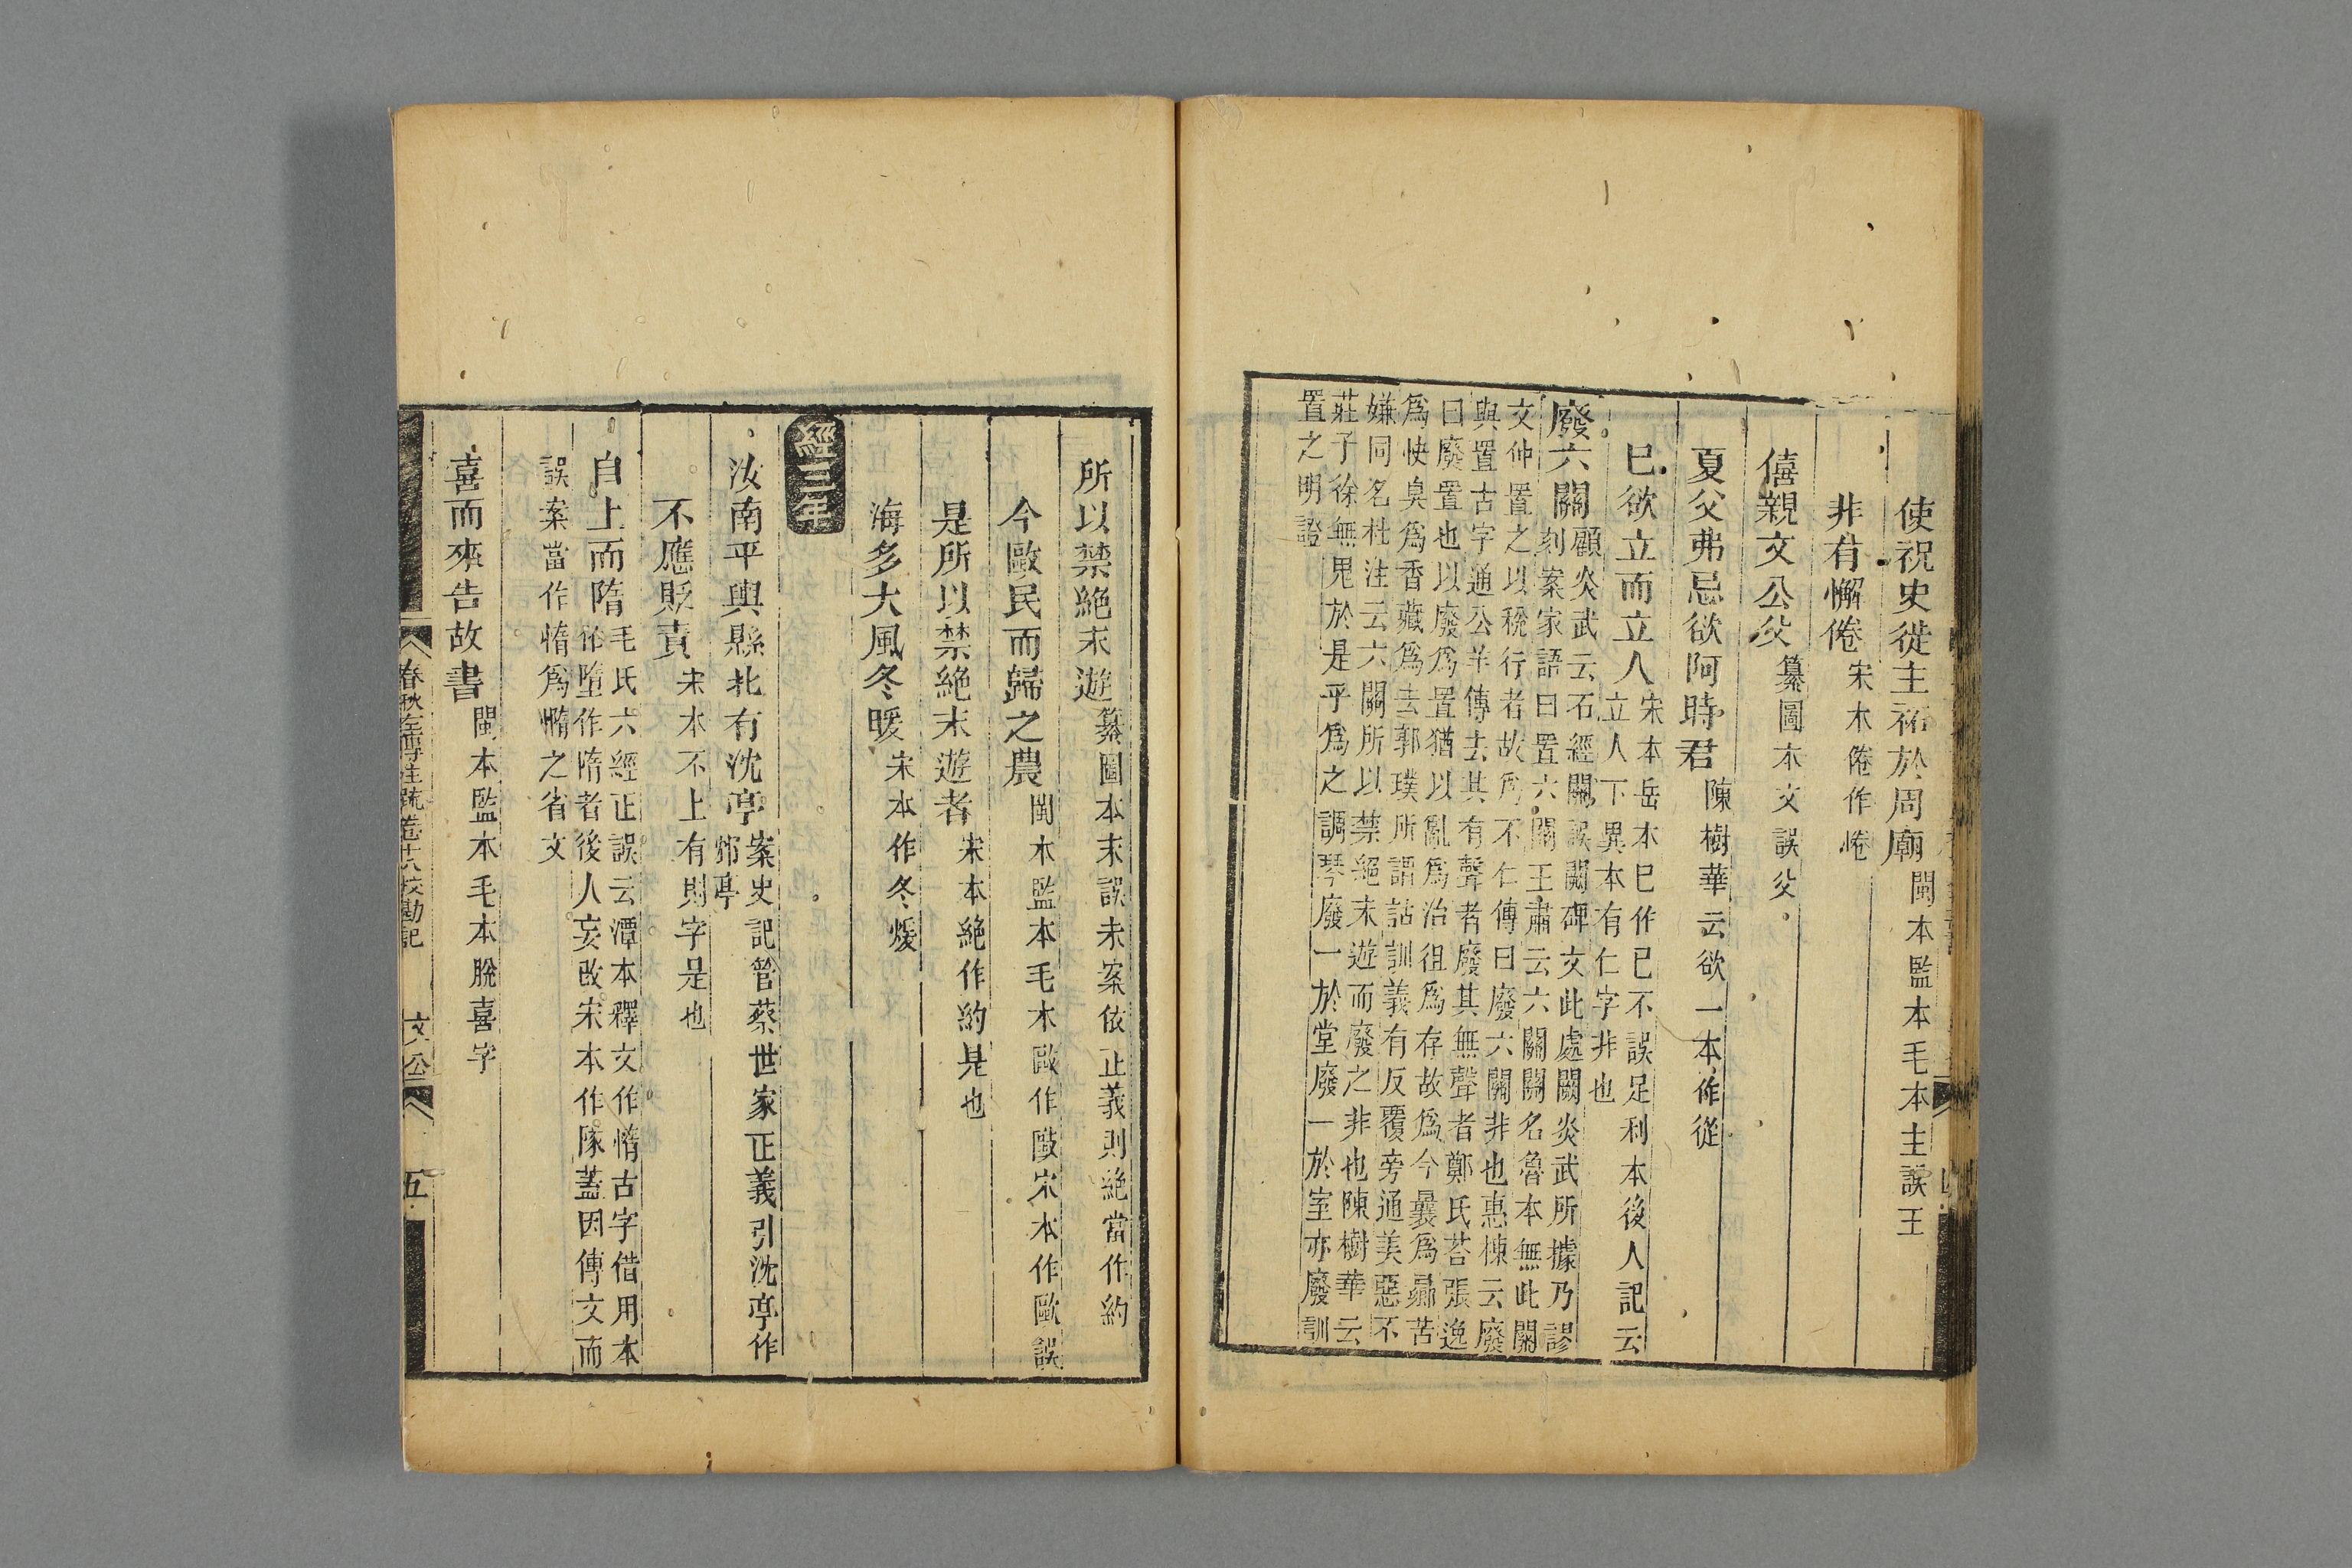 使祝史徙主祏於周廟閩本監本毛本主誤王
非有懈倦宋本倦作惓
僖親文公父纂圖本文誤父
夏父弗忌欲阿時君陳樹華云欲一本作從
巳欲立而立人宋本岳本巳作已不誤足利本後人記云
立人下異本有仁字非也
廢六關顧炎武云石經關誤闕碑文此處闕炎武所據乃謬
刻案家語曰置六關王肅云六關關名魯本無此關
文仲置之以稅行者故爲不仁傳曰廢六關非也惠棟云廢
與置古字通公羊傳去其有聲者廢其無聲者鄭氏荅張逸
曰廢置也以廢爲置猶以亂爲治徂爲存故爲今曩爲曏苦
爲快臭爲香藏爲去郭璞所謂詁訓義有反覆旁通美惡不
嫌同名杜注云六關所以禁絕末遊而廢之非也陳樹華云
莊子徐無鬼於是乎爲之調琴廢一於堂廢一於室亦廢訓
置之明證
所以禁絕末遊纂圖本末誤未案依正義則絕當作約
今歐民而歸之農閩本監本毛本歐作敺宋本作毆誤
是所以禁絕末遊者宋本絕作約是也
海多大風冬暖宋本作冬煖
經三年
汝南平輿縣北有沈亭案史記管蔡世家正義引沈亭作
䢴亭
不應貶責宋本不上有則字是也
自上而隋毛氏六經正誤云潭本釋文作惰古字借用本
作墮作隋者後人妄改宋本作隊蓋因傳文而
誤案當作惰爲憜之省文
喜而來告故書閩本監本毛本脫喜字
春秋左傳注疏卷十八校勘記　文公　五